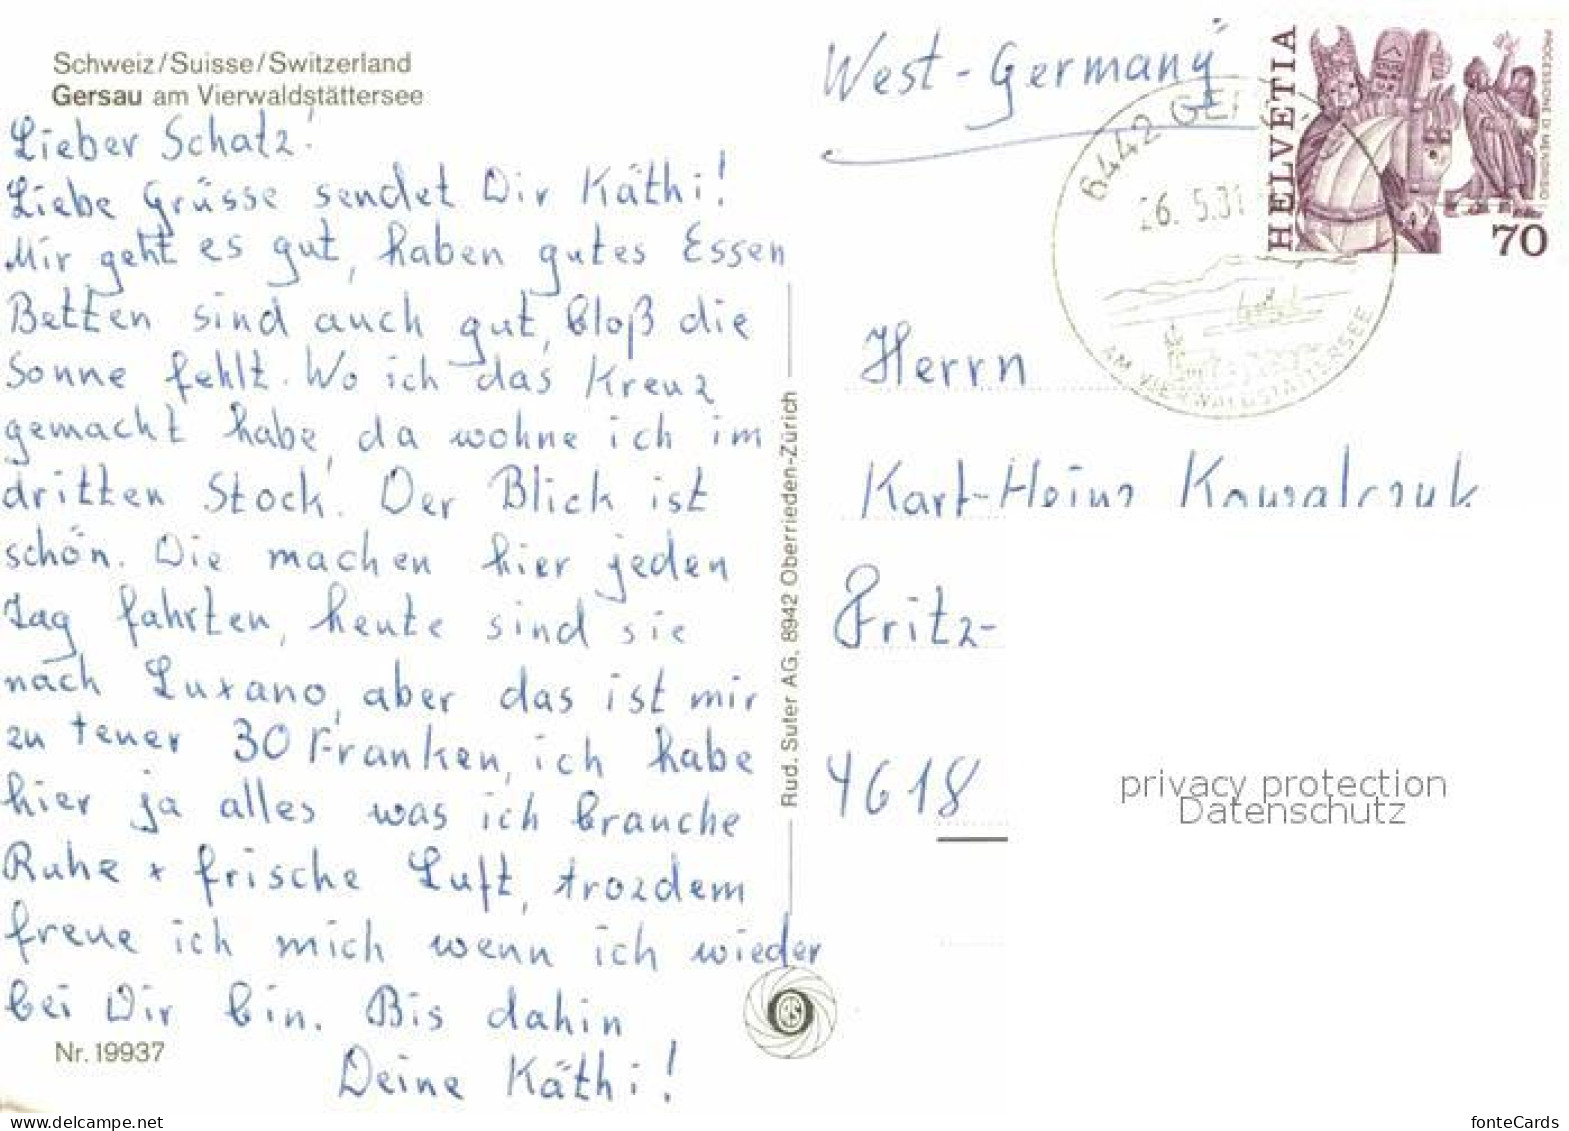 Schweiz/Suisse/Switzerland
Gersau am Vierwaldstättersee
Lieber Schatz.
Liebe Grüsse sendet Dir Käthi!
Mir geht es gut, haben gutes Essen
Betten sind auch gut, bloß die
Sonne fehlt. Wo ich das Kreuz
gemacht habe, da wohne ich im
dritten Stock. Der Blick ist
schön. Die machen hier jeden
Tag fahrten, heute sind sie
nach Luxano, aber das ist mir
zu teuer 30 Franken, ich habe
hier ja alles was ich brauche
Ruhe + frische Luft, trozdem
freue ich mich wenn ich wieder
bei Dir bin. Bis dahin
Deine Käthi!
Nr. 19937
Rud. Suter AG, 8942 Oberrieden-Zürich
West-Germany
6442 GE
26. 5.81
AM VIERWALDSTÄTTERSEE
HELVETIA
PROCESSIONE DI MENDRISIO
70
Herrn
Karl-Heinz Kowalczuk
Fritz-
4618
privacy protection
Datenschutz
www.delcampe.net
fonteCards